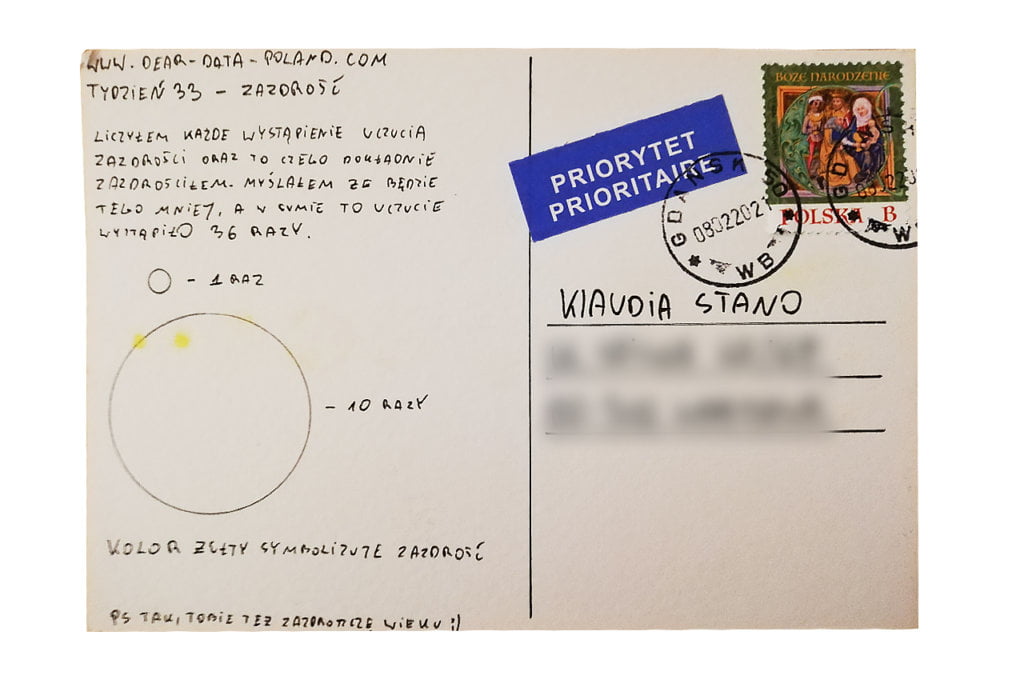 WWW.DEAR-DATA-POLAND.COM
TYDZIEŃ 33 – ZAZDROŚĆ
LICZYŁEM KAŻDE WYSTĄPIENIE UCZUCIA
ZAZDROŚCI ORAZ TO CZEGO DOKŁADNIE
ZAZDROŚCIŁEM. MYŚLAŁEM ŻE BĘDZIE
TEGO MNIEJ, A W SUMIE TO UCZUCIE
WYSTĄPIŁO 36 RAZY.
– 1 RAZ
– 10 RAZY
KOLOR ŻÓŁTY SYMBOLIZUJE ZAZDROŚĆ
PS TAK, TOBIE TEŻ ZAZDROSZCZĘ WIEKU :)
PRIORYTET
PRIORITAIRE
BOŻE NARODZENIE
POLSKA B
GDAŃSK
08022021
WB
KLAUDIA STANO